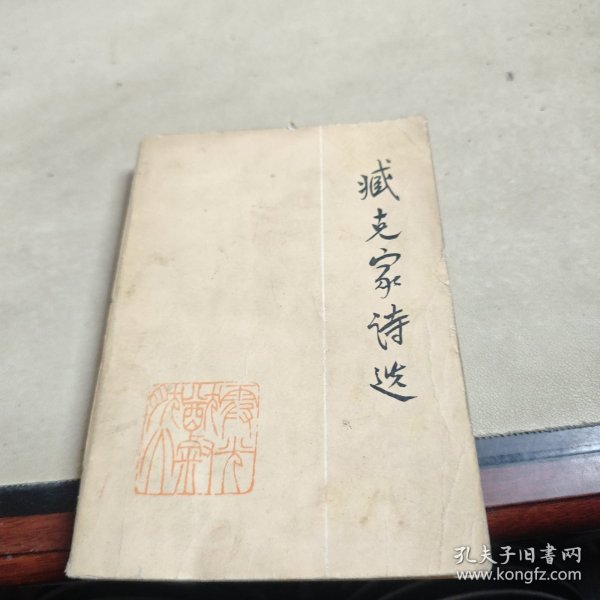 臧克家诗选
孔夫子旧书网
www.kongfz.com